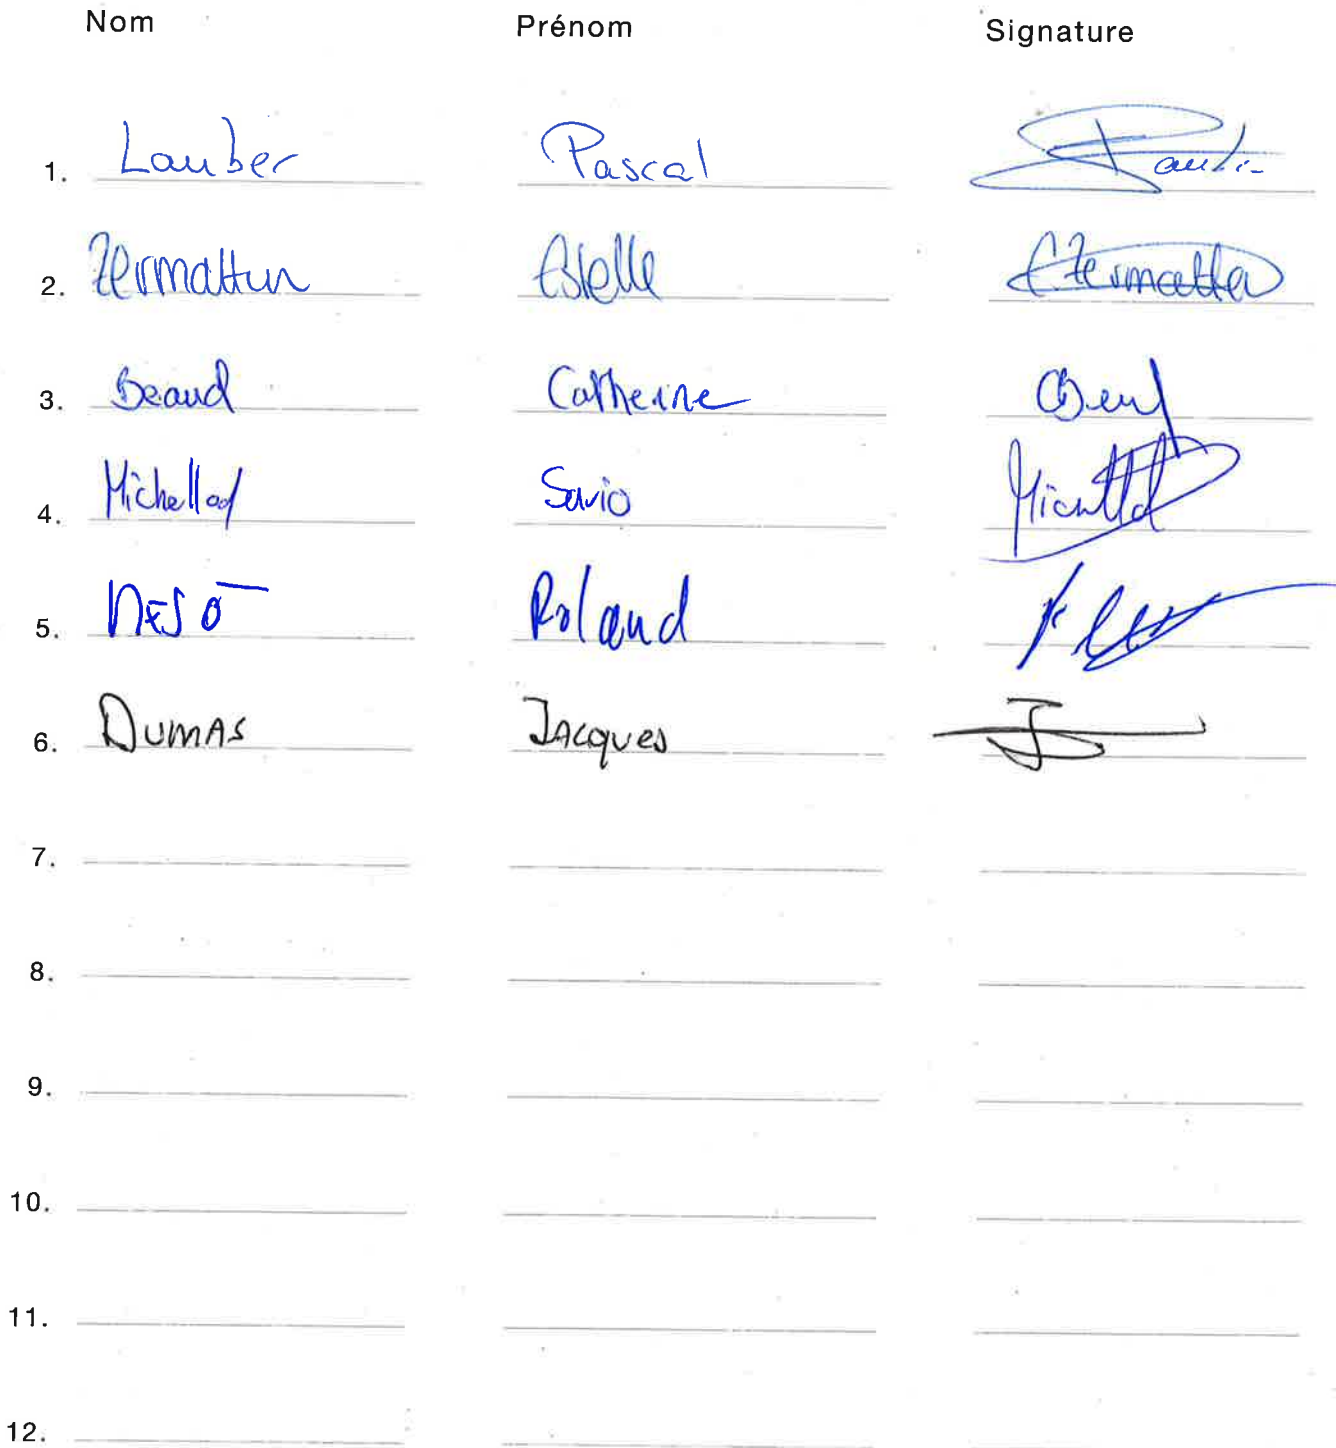 Nom Prénom Signature
1. Lauber Pascal
2. Zermatten Estelle
3. Beaud Catherine
4. Michellod Savio
5. Roland
6. Dumas Jacques
7.
8.
9.
10.
11.
12.